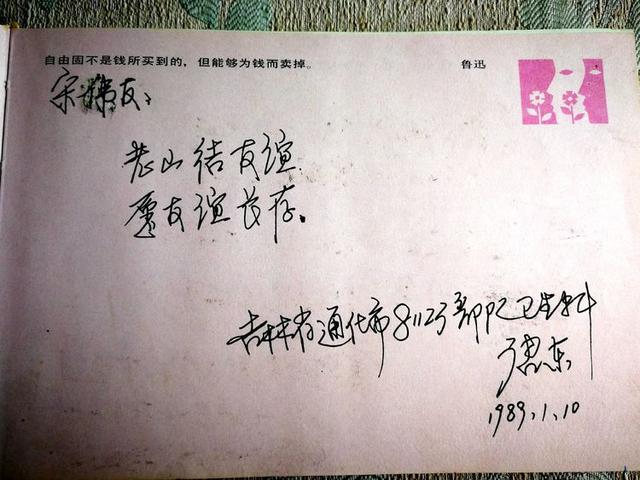 自由固不是钱所买到的，但能够为钱而卖掉。 鲁迅
宋 友：
老山结友谊
愿友谊长存。
吉林省通化市81123部队卫生科
惠东
1989.1.10